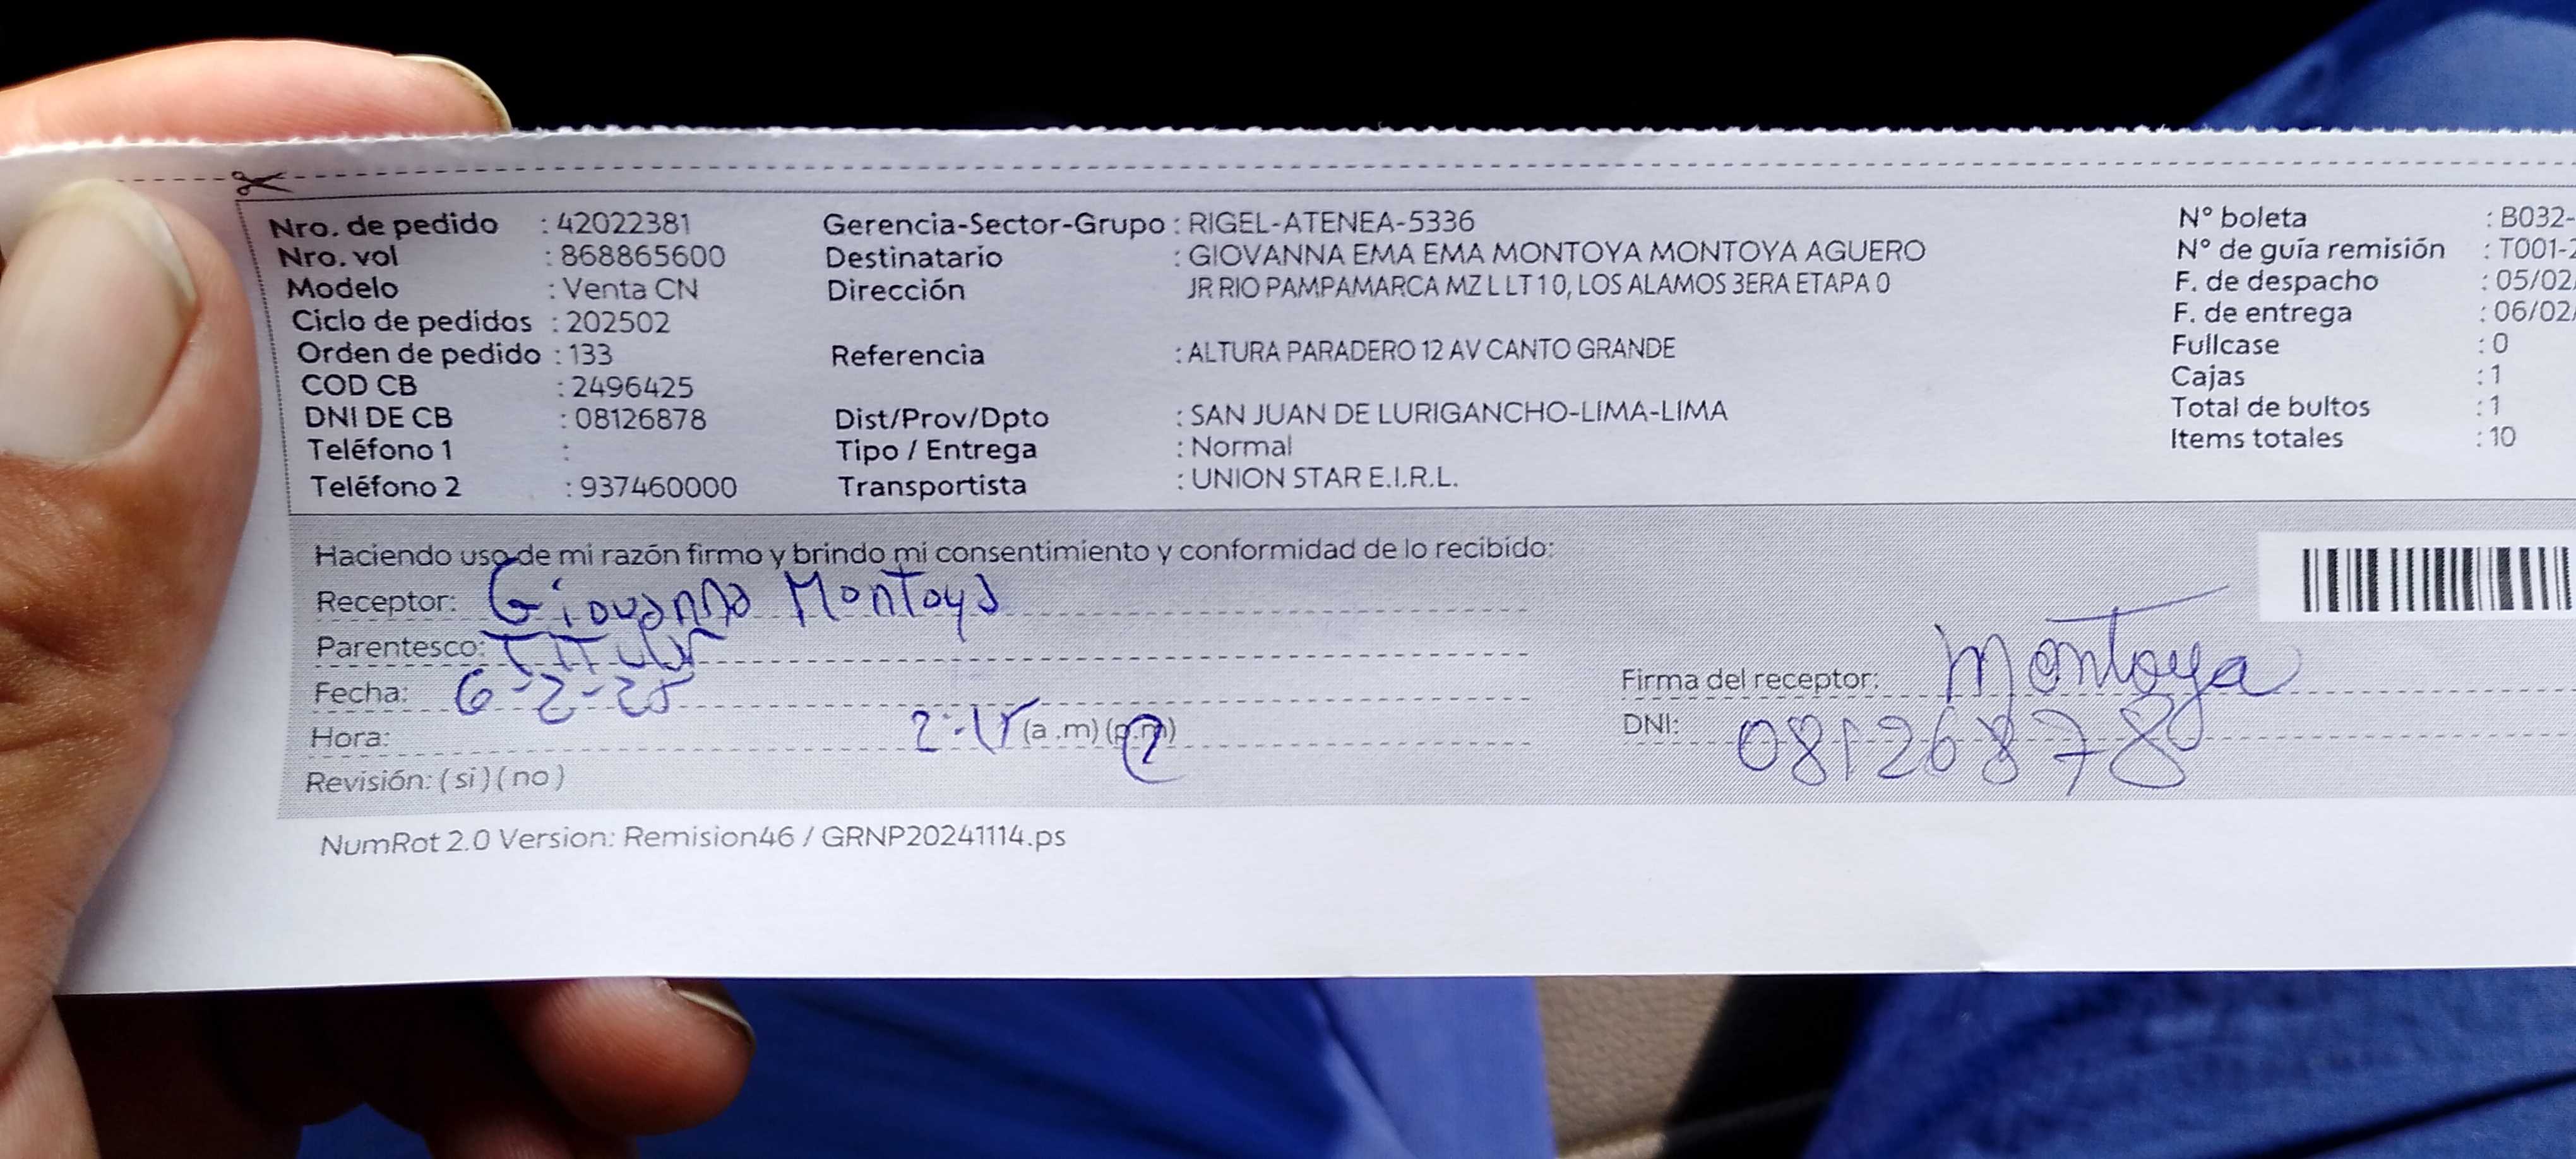 Nro. de pedido : 42022381 Gerencia-Sector-Grupo : RIGEL-ATENEA-5336 N° boleta : B032-
Nro. vol : 868865600 Destinatario : GIOVANNA EMA EMA MONTOYA MONTOYA AGUERO N° de guía remisión : T001-2
Modelo : Venta CN Dirección JR RIO PAMPAMARCA MZ L LT 10, LOS ALAMOS 3ERA ETAPA 0 F. de despacho : 05/02/
Ciclo de pedidos : 202502 F. de entrega : 06/02/
Orden de pedido : 133 Referencia : ALTURA PARADERO 12 AV CANTO GRANDE Fullcase : 0
COD CB : 2496425 Cajas : 1
DNI DE CB : 08126878 Dist/Prov/Dpto : SAN JUAN DE LURIGANCHO-LIMA-LIMA Total de bultos : 1
Teléfono 1 : Tipo / Entrega : Normal Items totales : 10
Teléfono 2 : 937460000 Transportista : UNION STAR E.I.R.L.
Haciendo uso de mi razón firmo y brindo mi consentimiento y conformidad de lo recibido:
Receptor: Giovanna Montoya
Parentesco: Titular
Fecha: 6-2-25 Firma del receptor: Montoya
Hora: 2:15 (a .m) (p.m) DNI: 08126878
Revisión: ( si ) ( no )
NumRot 2.0 Version: Remision46 / GRNP20241114.ps